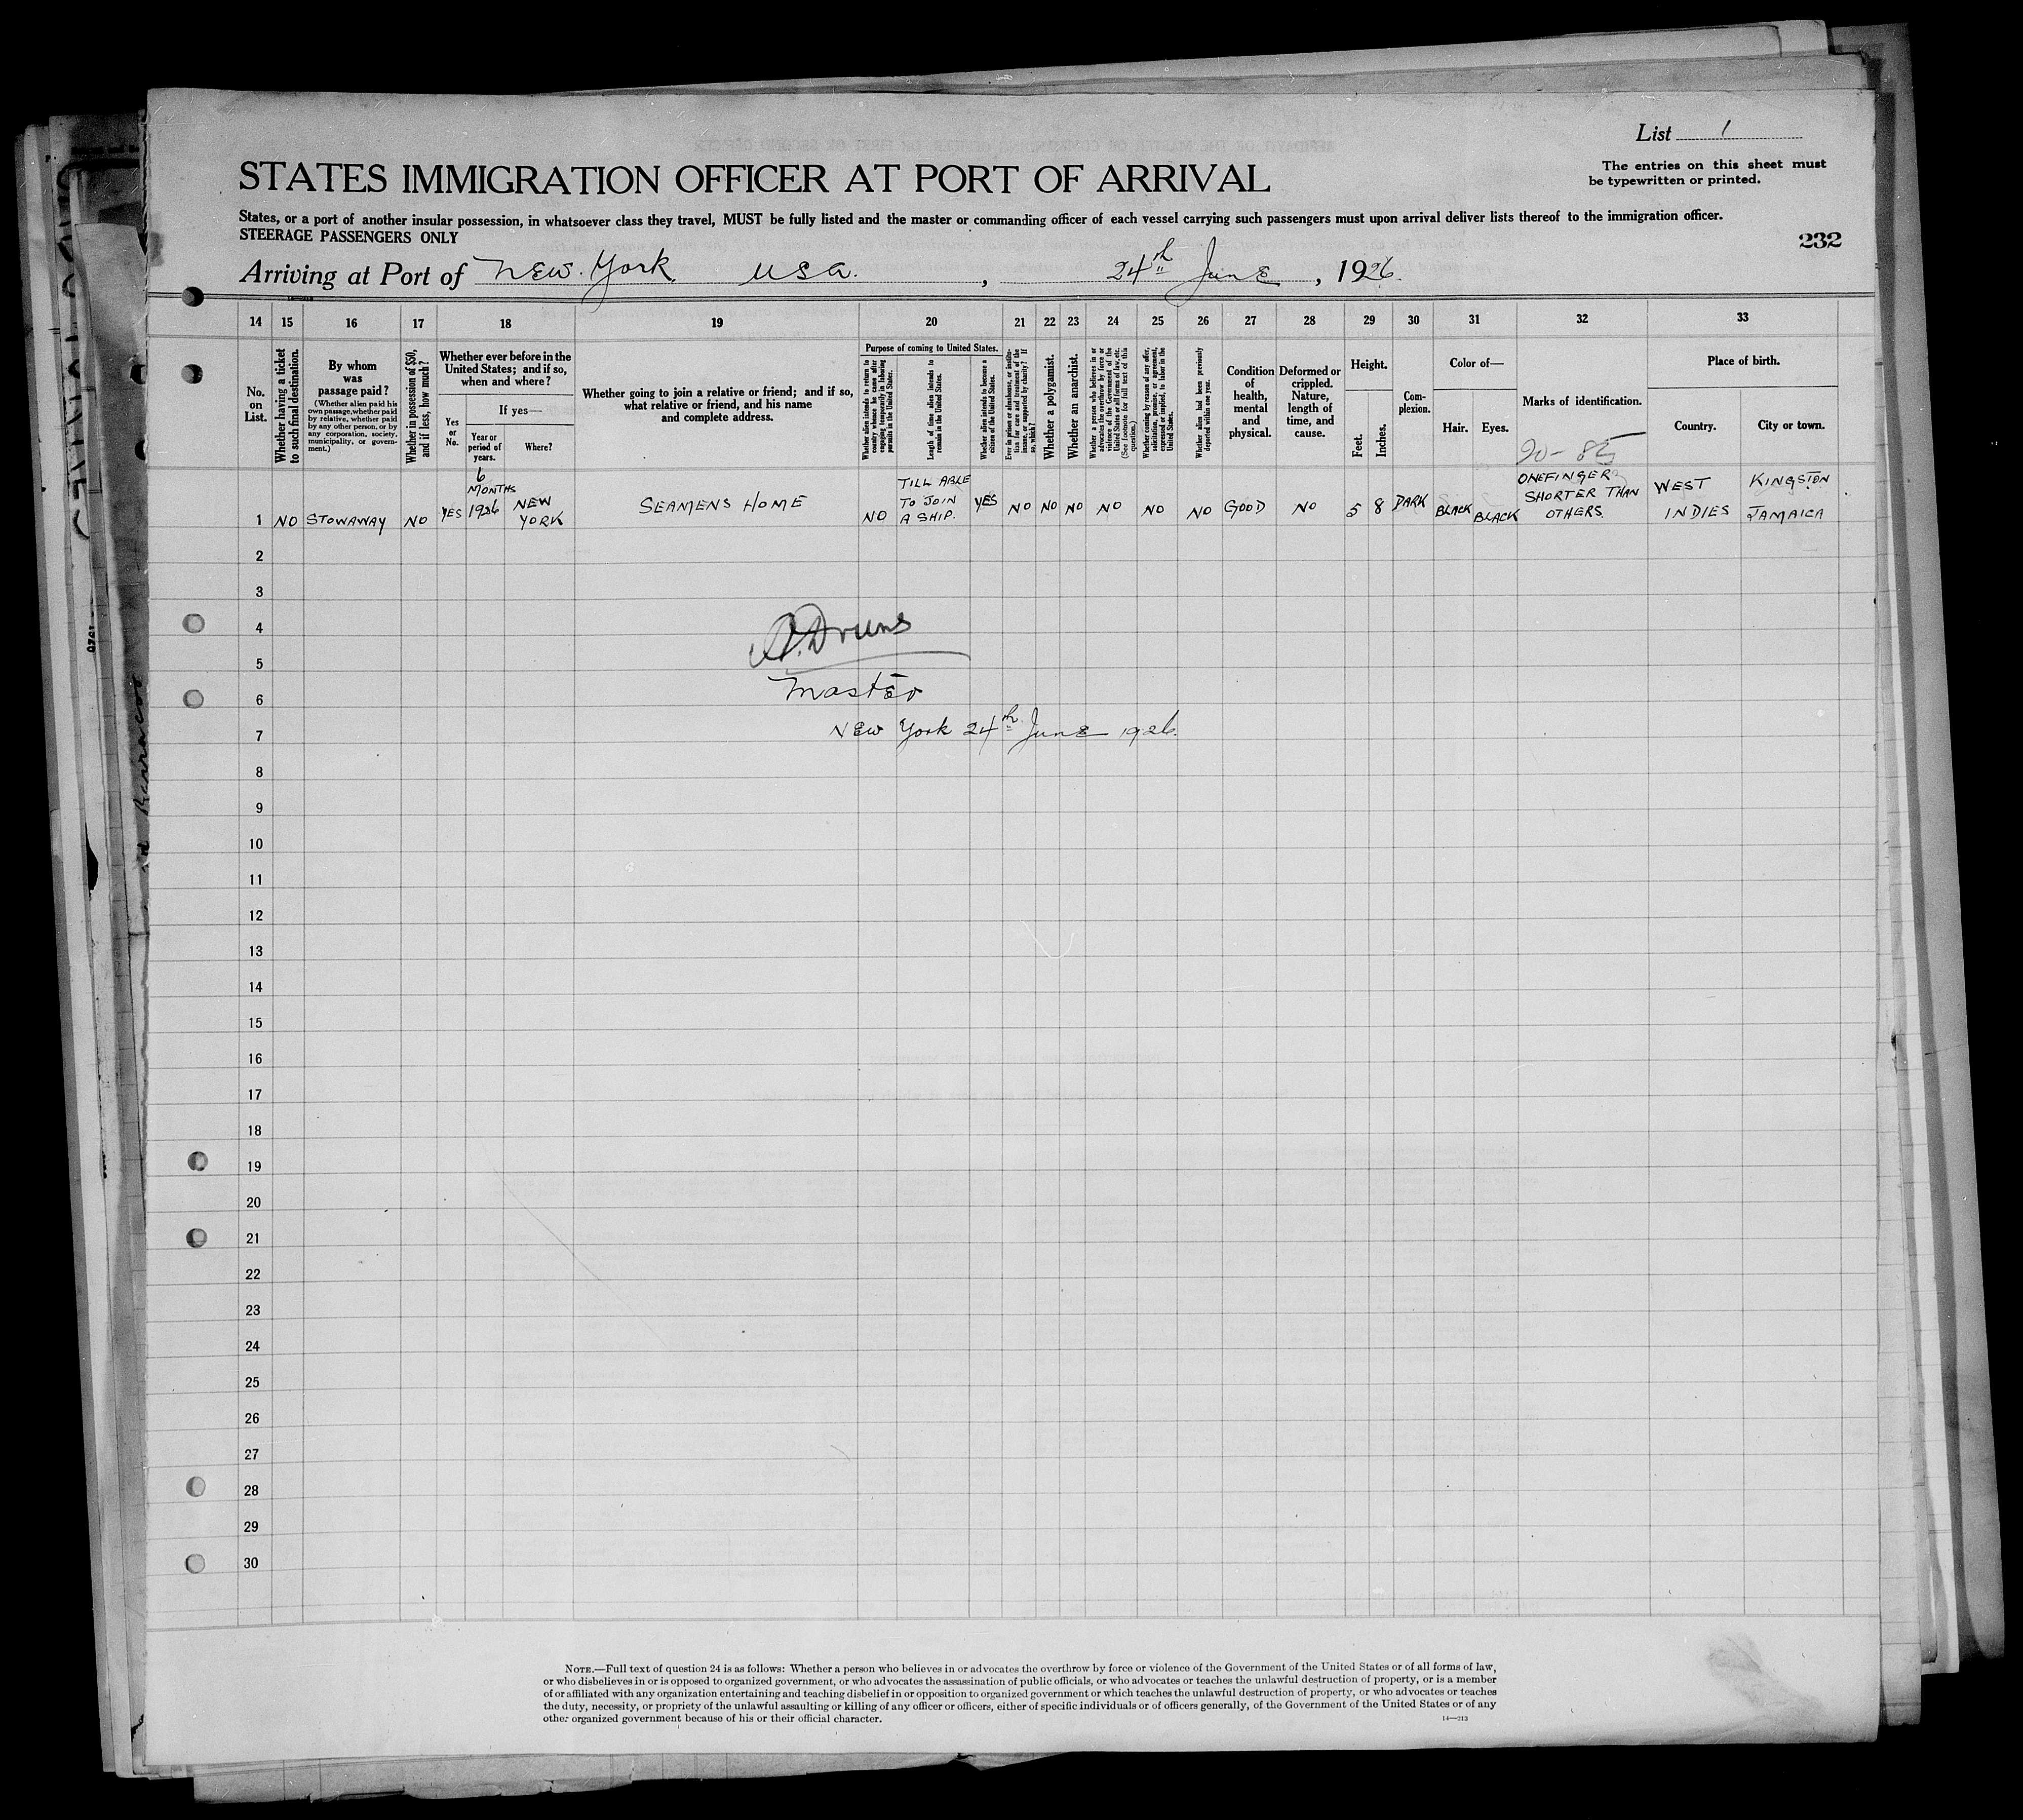 List 1
The entries on this sheet must
be typewritten or printed.
STATES IMMIGRATION OFFICER AT PORT OF ARRIVAL
States, or a port of another insular possession, in whatsoever class they travel, MUST be fully listed and the master or commanding officer of each vessel carrying such passengers must upon arrival deliver lists thereof to the immigration officer.
STEERAGE PASSENGERS ONLY
232
Arriving at Port of New York USA., 24th June, 1926.
14 15 16 17 18 19 20 21 22 23 24 25 26 27 28 29 30 31 32 33
No.
on
List.
Whether having a ticket
to such final destination.
By whom
was
passage paid?
(Whether alien paid his
own passage, whether paid
by relative, whether paid
by any other person, or by
any corporation, society,
municipality, or govern-
ment.)
Whether in possession of $50,
and if less, how much?
Whether ever before in the
United States; and if so,
when and where?
Yes
or
No.
If yes—
Year or
period of
years.
Where?
Whether going to join a relative or friend; and if so,
what relative or friend, and his name
and complete address.
Purpose of coming to United States.
Whether alien intends to return to
country whence he came after
engaging temporarily in laboring
pursuits in the United States.
Length of time alien intends to
remain in the United States.
Whether alien intends to become a
citizen of the United States.
Ever in prison or almshouse, or institu-
tion for care and treatment of the
insane, or supported by charity? If
so, which?
Whether a polygamist.
Whether an anarchist.
Whether a person who believes in or
advocates the overthrow by force or
violence of the Government of the
United States or all forms of law, etc.
(See footnote for full text of this
question.)
Whether coming by reason of any offer,
solicitation, promise, or agreement,
expressed or implied, to labor in the
United States.
Whether alien had been previously
deported within one year.
Condition
of
health,
mental
and
physical.
Deformed or
crippled.
Nature,
length of
time, and
cause.
Height.
Feet.
Inches.
Com-
plexion.
Color of—
Hair.
Eyes.
Marks of identification.
20-85
Place of birth.
Country.
City or town.
1 NO STOWAWAY NO YES 6 MONTHS 1926 NEW YORK SEAMENS HOME NO TILL ABLE TO JOIN A SHIP. YES NO NO NO NO NO NO GOOD NO 5 8 DARK BLACK BLACK ONEFINGER SHORTER THAN OTHERS. WEST INDIES KINGSTON JAMAICA
2
3
4
5
6
7
8
9
10
11
12
13
14
15
16
17
18
19
20
21
22
23
24
25
26
27
28
29
30
Master
New York 24th June 1926.
NOTE.—Full text of question 24 is as follows: Whether a person who believes in or advocates the overthrow by force or violence of the Government of the United States or of all forms of law,
or who disbelieves in or is opposed to organized government, or who advocates the assassination of public officials, or who advocates or teaches the unlawful destruction of property, or is a member
of or affiliated with any organization entertaining and teaching disbelief in or opposition to organized government or which teaches the unlawful destruction of property, or who advocates or teaches
the duty, necessity, or propriety of the unlawful assaulting or killing of any officer or officers, either of specific individuals or of officers generally, of the Government of the United States or of any
other organized government because of his or their official character.
14—213